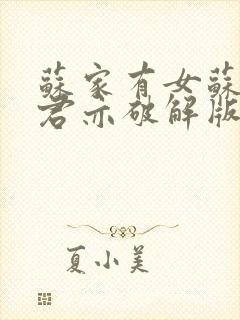 蘇家有女蘇
君亦破解版
夏小美